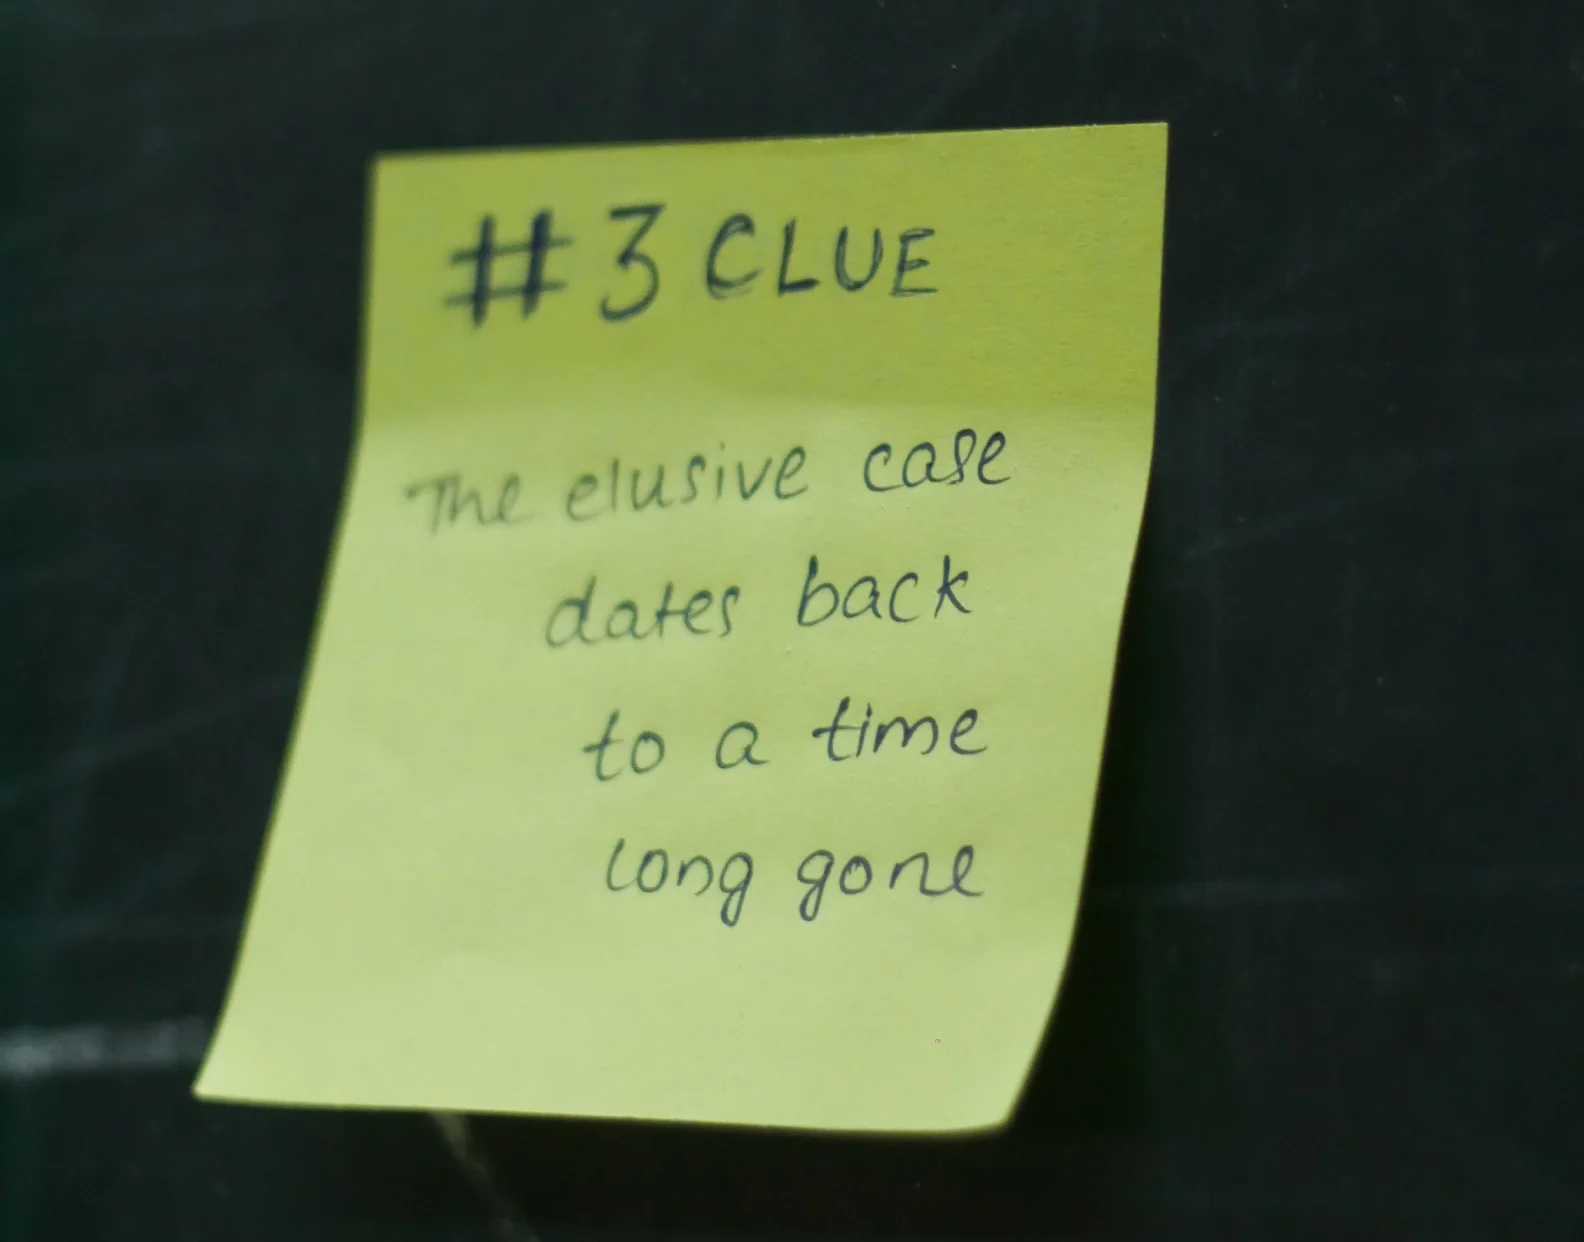 #3 CLUE
The elusive case
dates back
to a time
long gone